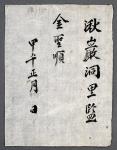 湫巖洞里監
金聖順
甲午正月 日